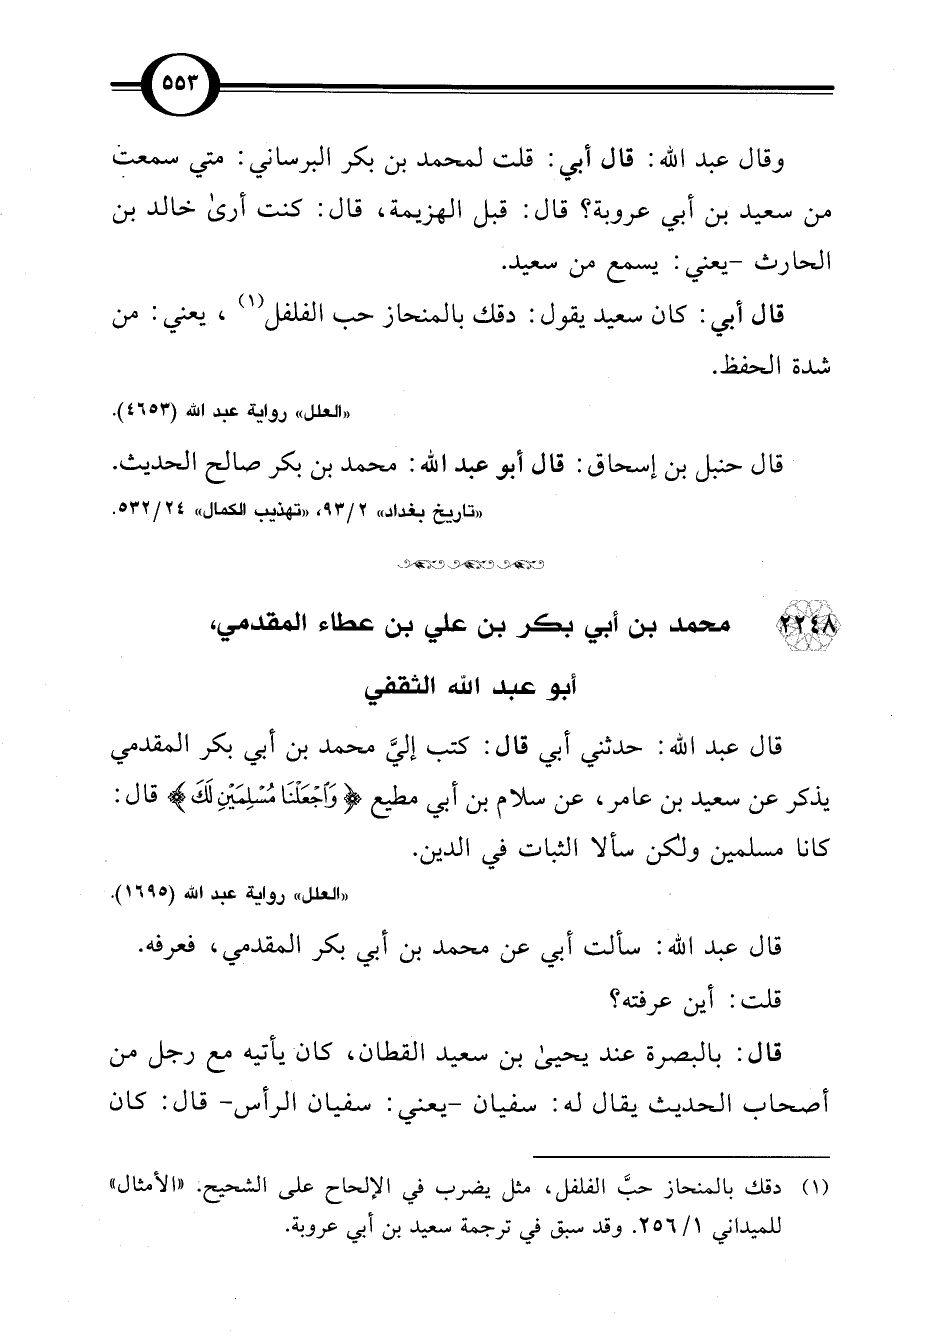 ٥٥٣
وقال عبد الله: قال أبي: قلت لمحمد بن بكر البرساني: متي سمعت
من سعيد بن أبي عروبة؟ قال: قبل الهزيمة، قال: كنت أرىٰ خالد بن
الحارث -يعني: يسمع من سعيد.
قال أبي: كان سعيد يقول: دقك بالمنحاز حب الفلفل(١)، يعني: من
شدة الحفظ.
«العلل» رواية عبد الله (٤٦٥٣).
قال حنبل بن إسحاق: قال أبو عبد الله: محمد بن بكر صالح الحديث.
«تاريخ بغداد» ٢/ ٩٣، «تهذيب الكمال» ٢٤/ ٥٣٢.
٢٢٤٨ محمد بن أبي بكر بن علي بن عطاء المقدمي،
أبو عبد الله الثقفي
قال عبد الله: حدثني أبي قال: كتب إليَّ محمد بن أبي بكر المقدمي
يذكر عن سعيد بن عامر، عن سلام بن أبي مطيع ﴿وَٱجْعَلْنَا مُسْلِمَيْنِ لَكَ﴾ قال:
كانا مسلمين ولكن سألا الثبات في الدين.
«العلل» رواية عبد الله (١٦٩٥).
قال عبد الله: سألت أبي عن محمد بن أبي بكر المقدمي، فعرفه.
قلت: أين عرفته؟
قال: بالبصرة عند يحيىٰ بن سعيد القطان، كان يأتيه مع رجل من
أصحاب الحديث يقال له: سفيان -يعني: سفيان الرأس- قال: كان
(١) دقك بالمنحاز حبَّ الفلفل، مثل يضرب في الإلحاح على الشحيح. «الأمثال»
للميداني ١/ ٢٥٦. وقد سبق في ترجمة سعيد بن أبي عروبة.